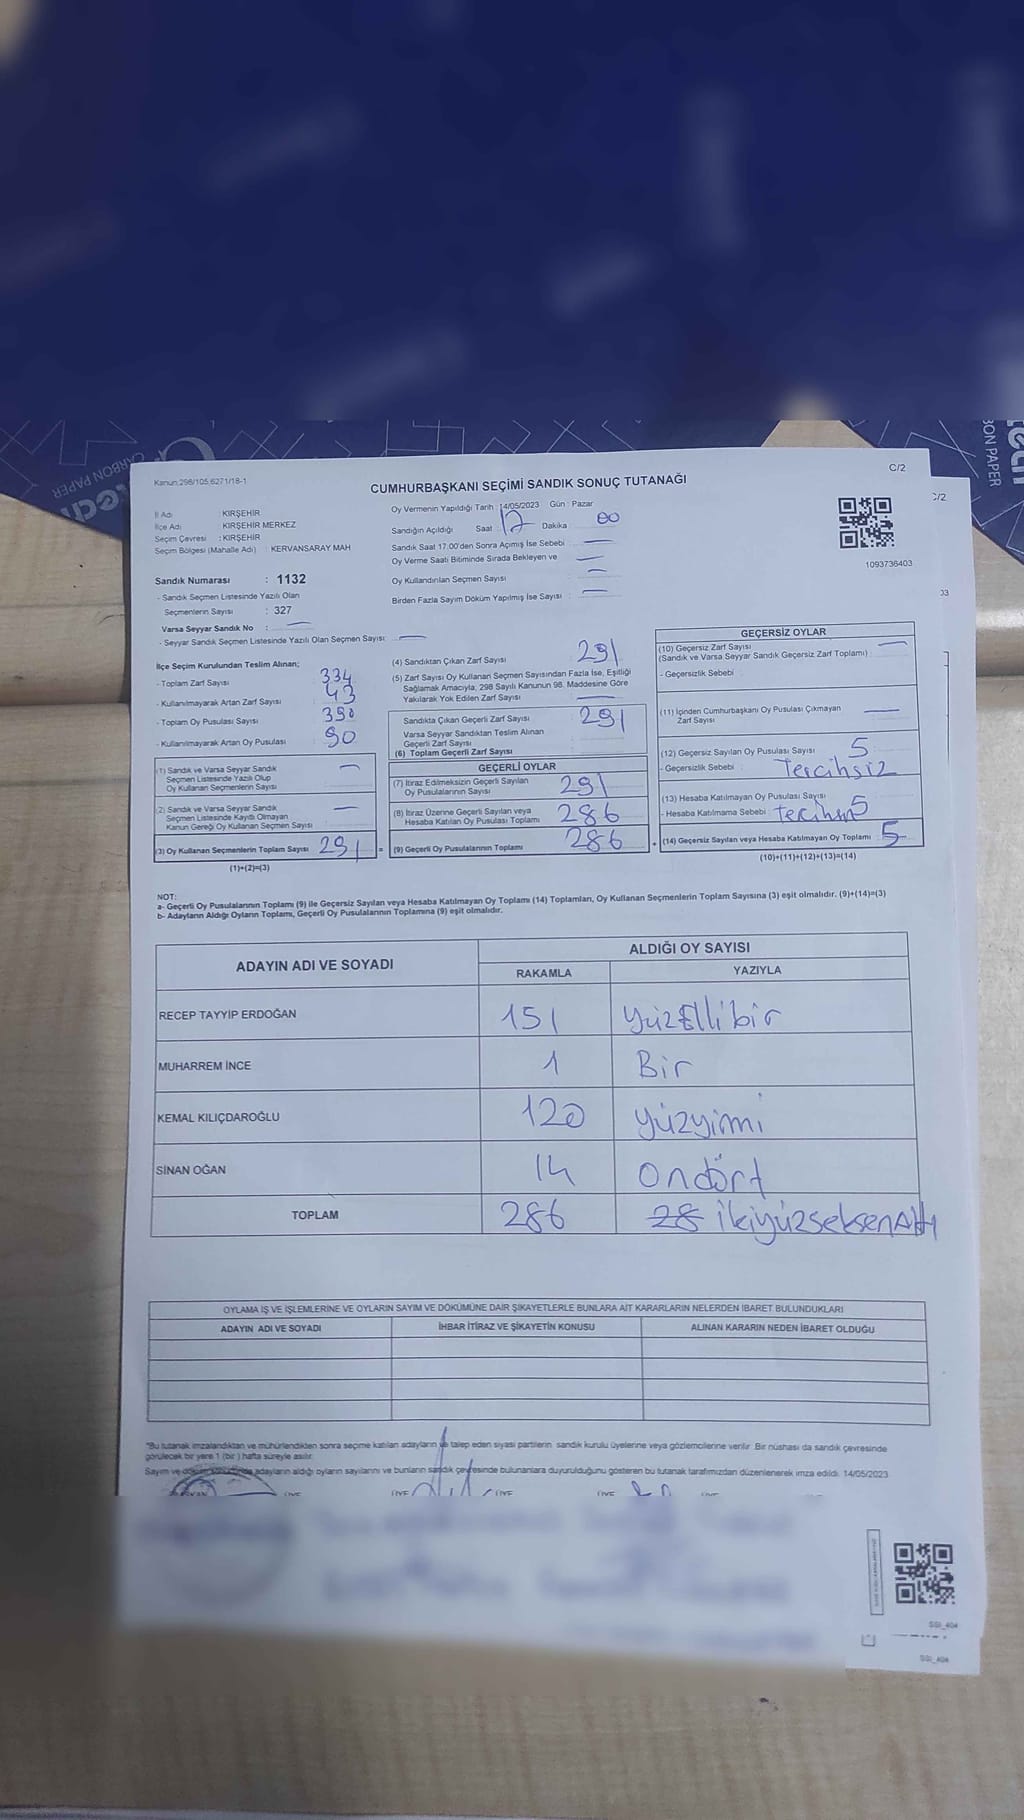 CARBON PAPER
BON PAPER
Kanun:298/105,6271/18-1
C/2
C/2
CUMHURBAŞKANI SEÇİMİ SANDIK SONUÇ TUTANAĞI
İl Adı : KIRŞEHİR
İlçe Adı : KIRŞEHİR MERKEZ
Seçim Çevresi : KIRŞEHİR
Seçim Bölgesi (Mahalle Adı) : KERVANSARAY MAH
Oy Vermenin Yapıldığı Tarih : 14/05/2023 Gün : Pazar
Sandığın Açıldığı Saat 17 Dakika 00
Sandık Saat 17.00'den Sonra Açımış İse Sebebi —
Oy Verme Saati Bitiminde Sırada Bekleyen ve —
Oy Kullandırılan Seçmen Sayısı —
Birden Fazla Sayım Döküm Yapılmış İse Sayısı —
1093736403
Sandık Numarası : 1132
- Sandık Seçmen Listesinde Yazılı Olan
Seçmenlerin Sayısı : 327
Varsa Seyyar Sandık No : —
- Seyyar Sandık Seçmen Listesinde Yazılı Olan Seçmen Sayısı: —
İlçe Seçim Kurulundan Teslim Alınan;
- Toplam Zarf Sayısı 334
- Kullanılmayarak Artan Zarf Sayısı 43
- Toplam Oy Pusulası Sayısı 390
- Kullanılmayarak Artan Oy Pusulası 90
(1) Sandık ve Varsa Seyyar Sandık
Seçmen Listesinde Yazılı Olup
Oy Kullanan Seçmenlerin Sayısı —
(2) Sandık ve Varsa Seyyar Sandık
Seçmen Listesinde Kayıtlı Olmayan
Kanun Gereği Oy Kullanan Seçmen Sayısı —
(3) Oy Kullanan Seçmenlerin Toplam Sayısı 291 =
(1)+(2)=(3)
(4) Sandıktan Çıkan Zarf Sayısı 291
(5) Zarf Sayısı Oy Kullanan Seçmen Sayısından Fazla İse, Eşitliği
Sağlamak Amacıyla, 298 Sayılı Kanunun 98. Maddesine Göre
Yakılarak Yok Edilen Zarf Sayısı —
Sandıkta Çıkan Geçerli Zarf Sayısı 291
Varsa Seyyar Sandıktan Teslim Alınan
Geçerli Zarf Sayısı
(6) Toplam Geçerli Zarf Sayısı
GEÇERLİ OYLAR
(7) İtiraz Edilmeksizin Geçerli Sayılan
Oy Pusulalarının Sayısı 291
(8) İtiraz Üzerine Geçerli Sayılan veya
Hesaba Katılan Oy Pusulası Toplamı 286
(9) Geçerli Oy Pusulalarının Toplamı 286 +
GEÇERSİZ OYLAR
(10) Geçersiz Zarf Sayısı
(Sandık ve Varsa Seyyar Sandık Geçersiz Zarf Toplamı) : —
- Geçersizlik Sebebi
(11) İçinden Cumhurbaşkanı Oy Pusulası Çıkmayan
Zarf Sayısı —
(12) Geçersiz Sayılan Oy Pusulası Sayısı 5
- Geçersizlik Sebebi : Tercihsiz
(13) Hesaba Katılmayan Oy Pusulası Sayısı 5
- Hesaba Katılmama Sebebi :
(14) Geçersiz Sayılan veya Hesaba Katılmayan Oy Toplamı 5
(10)+(11)+(12)+(13)=(14)
NOT:
a- Geçerli Oy Pusulalarının Toplamı (9) ile Geçersiz Sayılan veya Hesaba Katılmayan Oy Toplamı (14) Toplamları, Oy Kullanan Seçmenlerin Toplam Sayısına (3) eşit olmalıdır. (9)+(14)=(3)
b- Adayların Aldığı Oyların Toplamı, Geçerli Oy Pusulalarının Toplamına (9) eşit olmalıdır.
ADAYIN ADI VE SOYADI
ALDIĞI OY SAYISI
RAKAMLA YAZIYLA
RECEP TAYYİP ERDOĞAN 151 yüzElli bir
MUHARREM İNCE 1 Bir
KEMAL KILIÇDAROĞLU 120 yüzyimi
SİNAN OĞAN 14 ondört
TOPLAM 286 28 ikiyüzseksenAltı
OYLAMA İŞ VE İŞLEMLERİNE VE OYLARIN SAYIM VE DÖKÜMÜNE DAİR ŞİKAYETLERLE BUNLARA AİT KARARLARIN NELERDEN İBARET BULUNDUKLARI
ADAYIN ADI VE SOYADI İHBAR İTİRAZ VE ŞİKAYETİN KONUSU ALINAN KARARIN NEDEN İBARET OLDUĞU
"Bu tutanak imzalandıktan ve mühürlendikten sonra seçime katılan adayların ve talep eden siyasi partilerin sandık kurulu üyelerine veya gözlemcilerine verilir. Bir nüshası da sandık çevresinde
görülecek bir yere 1 (bir) hafta süreyle asılır.
Sayım ve döküm sonucunda adayların aldığı oyların sayılarını ve bunların sandık çevresinde bulunanlara duyurulduğunu gösteren bu tutanak tarafımızdan düzenlenerek imza edildi. 14/05/2023
SSI_404
SSI_404